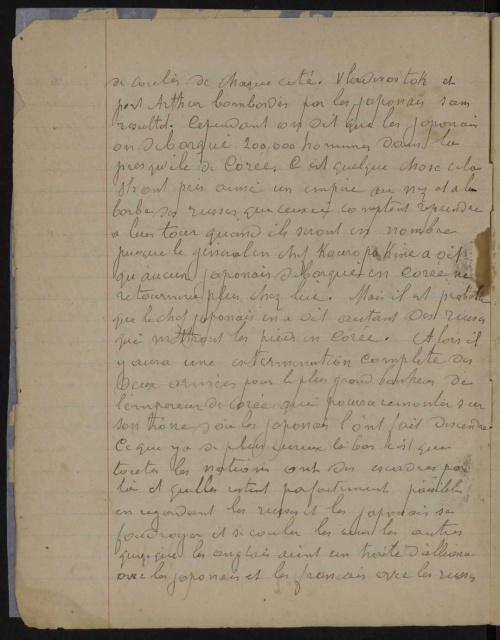 de coulés de chaque coté. Vladivostok et
port Arthur bombardés par les japonais sans
resultat. Cependant on dit que les japonais
on debarqué 200,000 hommes dans la
presqu'ile de Coree. C est quelque chose cela
Ils ont pris aussi un empire au nez et a la
barbe des russes que ceux ci comptent reprendre
a leur tour quand ils seront en nombre
puisque le general en chef Kouropatkine a dit
qu'aucun japonais debarqué en Corée ne
retournerai plus chez lui. Mais il est probable
que le chef japonais en a dit autant des russes
qui mettront les pieds en Corée. Alors il
y aura une extermination complete des
deux armées pour le plus grand bonheur de
l'empereur de Corée qui pourra remonter sur
son trone d'ou les japonais l'ont fait descendre
Ce que y a de plus curieux la bas c'est que
toutes les nations ont des escadres par
là et qu'elles restent parfaitement paisibles
en regardant les russes et les japonais se
foudroyer et se couler les uns les autres
quoique les anglais aient un traité d'alliance
avec les japonais et les francais avec les russes